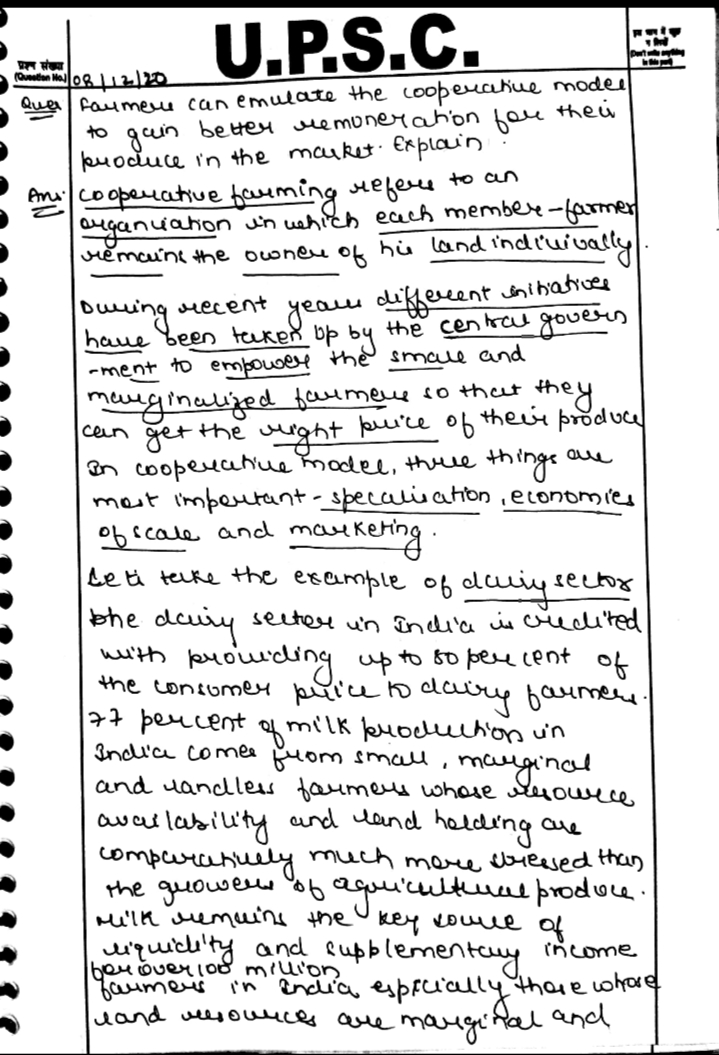 U.P.S.C.
प्रश्न संख्या
(Question No.)
08/12/20
इस भाग में कुछ
न लिखें
(Don't write anything
in this part)
Ques farmers can emulate the cooperative model
to gain better remuneration for their
produce in the market. Explain.
Ans. cooperative farming refers to an
organisation in which each member-farmer
remains the owner of his land individually.
During recent years different initiatives
have been taken up by the central govern
-ment to empower the small and
marginalized farmers so that they
can get the right price of their produce
In cooperative model, three things are
most important - specalisation, economies
of scale and marketing.
Lets take the example of dairy sector
the dairy sector in India is credited
with providing up to 80 per cent of
the consumer price to dairy farmers.
77 percent of milk production in
India comes from small, marginal
and landless farmers whose resource
availability and land holding are
comparatively much more stressed than
the growers of agricultural produce.
Milk remains the key source of
liquidity and supplementary income
for over 100 million
farmers in India especially those whose
land resources are marginal and